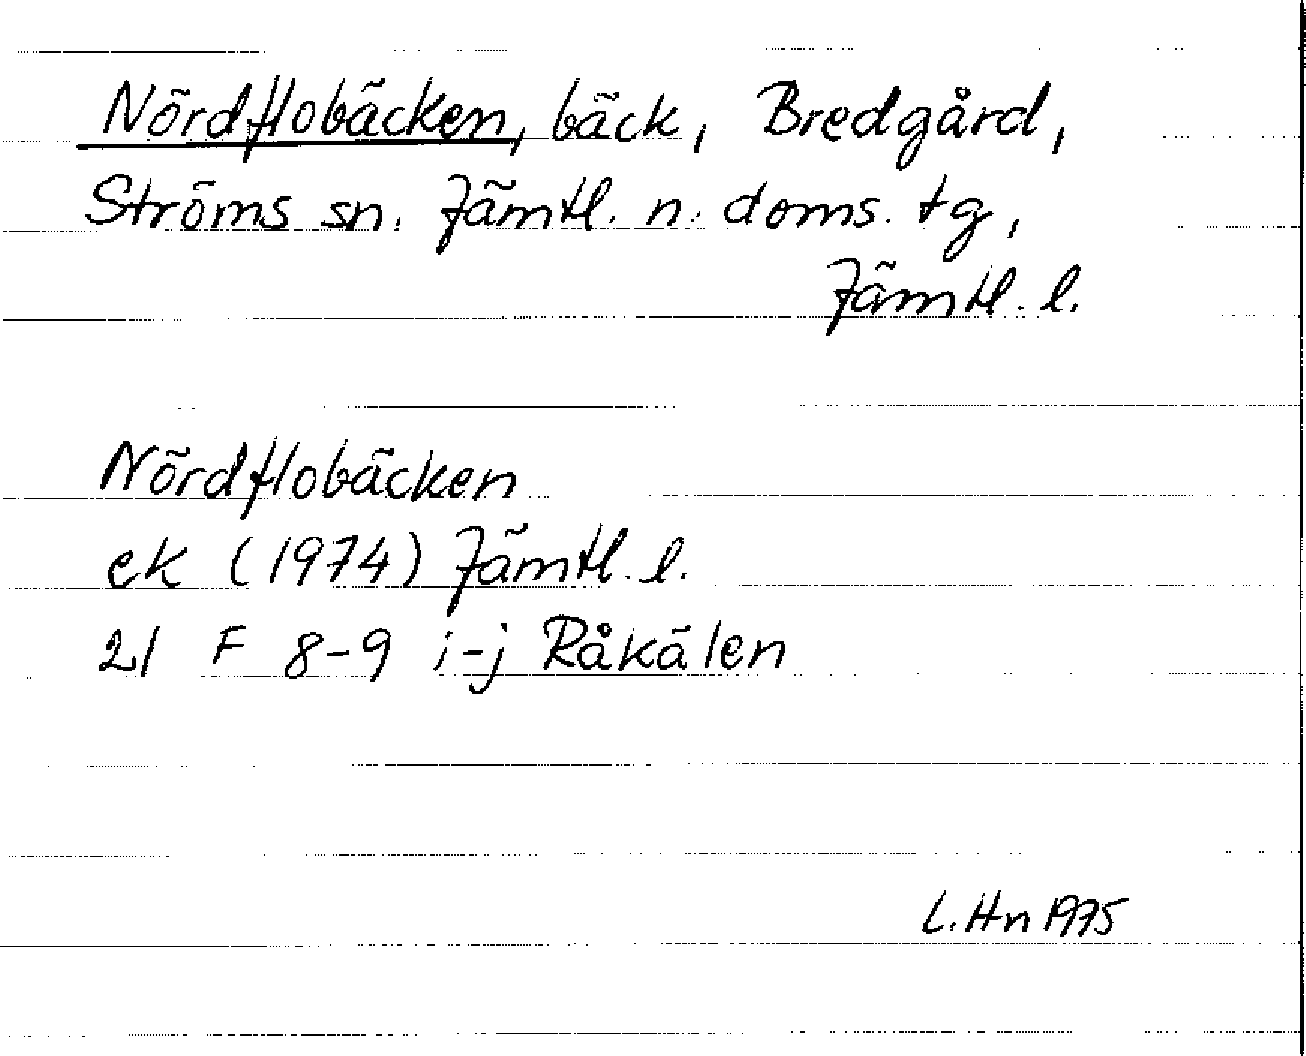 Nördflobäcken, bäck, Bredgård,
Ströms sn. Jämtl. n. doms. tg,
Jämtl. l.
Nördflobäcken
ek (1974) Jämtl. l.
21 F 8-9 i-j Råkälen
L. Hn 1975